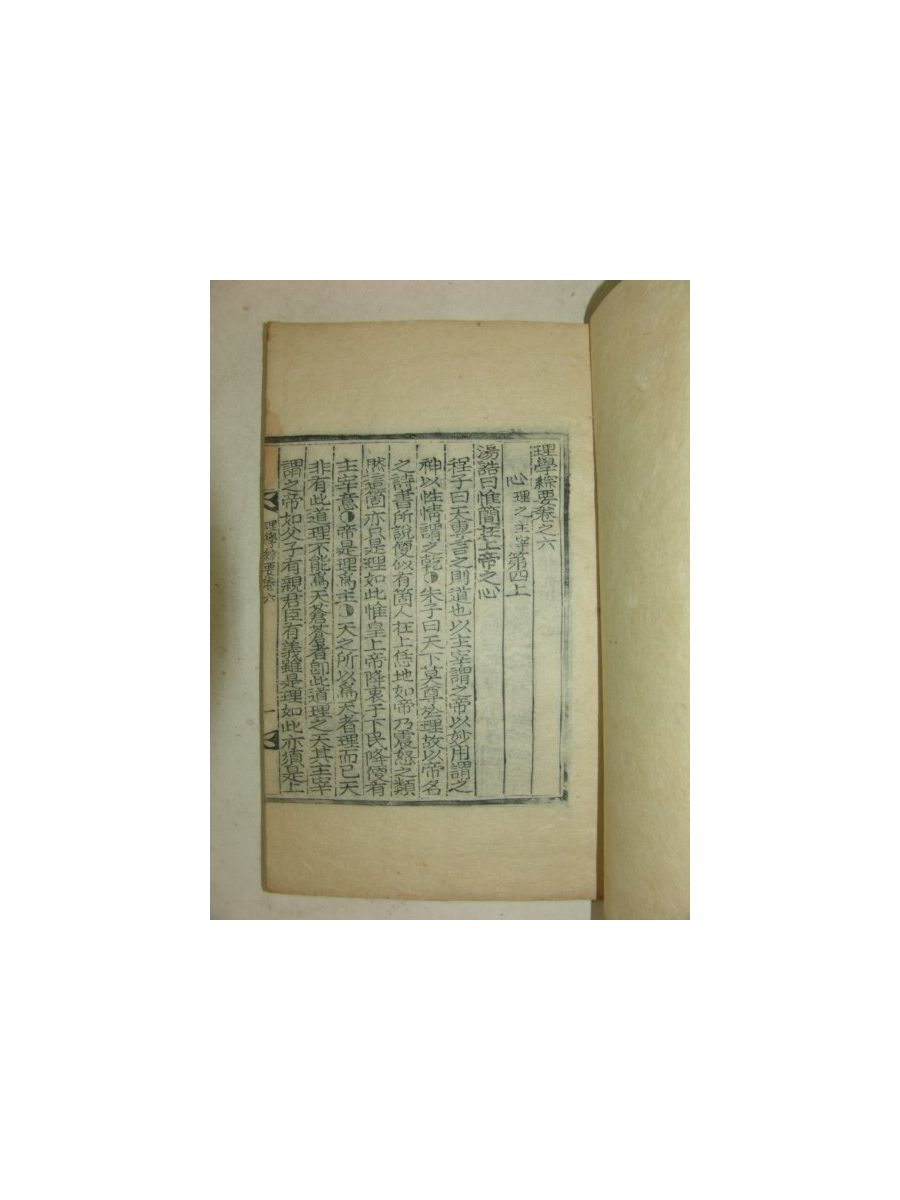 理學綜要卷之六
心理之主宰第四上
湯誥曰惟簡在上帝之心
程子曰天專言之則道也以主宰謂之帝以妙用謂之
神以性情謂之乾朱子曰天下莫尊於理故以帝名
之詩書所說便似有箇人在上恁地如帝乃震怒之類
然這箇亦只是理如此惟皇上帝降衷于下民降便有
主宰意帝是理爲主天之所以爲天者理而已天
非有此道理不能爲天蒼蒼者卽此道理之天其主宰
謂之帝如父子有親君臣有義雖是理如此亦須是上
理學綜要卷六
一